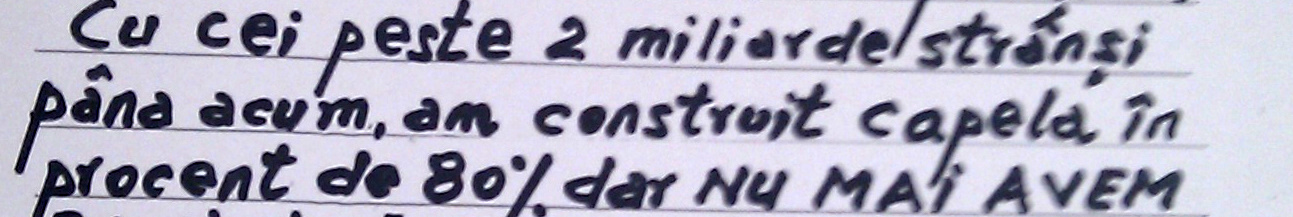 Cu cei peste 2 miliarde/strânși
până acum, am construit capela, în
procent de 80%, dar NU MAi AVEM